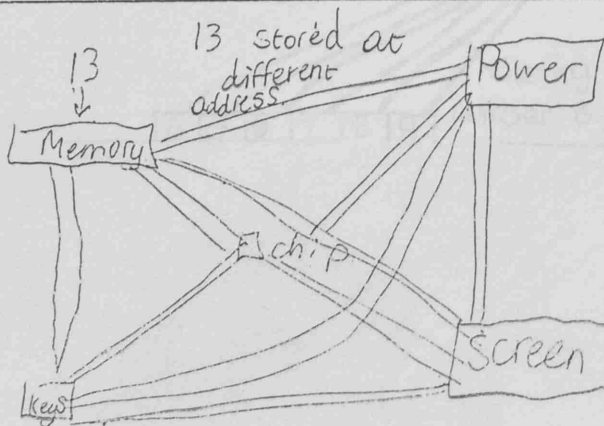 13 stored at
different
address.
13
Power
Memory
chip
Screen
Keys